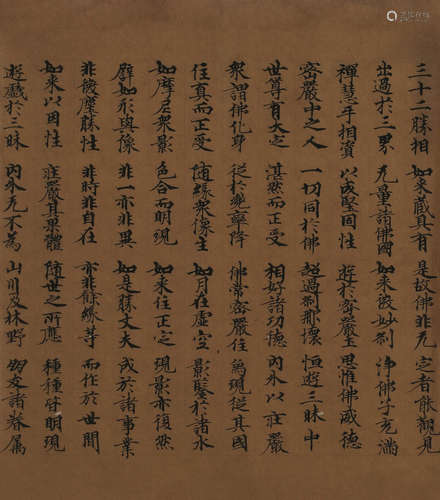 三十二勝相 如來藏具有 是故佛非无 定者能觀見
出過於三界 无量諸佛國 如來微妙剎 淨佛子充滿
禪慧互相資 以成堅固性 遊於密嚴土 思惟佛威德
密嚴中之人 一切同於佛 超過剎那壞 恒遊三昧中
世尊有大定 湛然而正受 相好諸功德 內外以莊嚴
衆謂佛化身 從於兜率降 佛常密嚴住 爲現從其國
住真而正受 随緣衆像生 如月在虛空 影鑒於諸水
如摩尼衆影 色合而明現 如來住正定 現影亦復然
譬如形與像 非一亦非異 如是勝丈夫 成於諸事業
非微塵勝性 非時非自在 亦非餘緣等 而作於世間
如來以因性 莊嚴其果體 隨世之所應 種種皆明現
遊戲於三昧 內外无不為 山川及林野 朋友諸眷屬